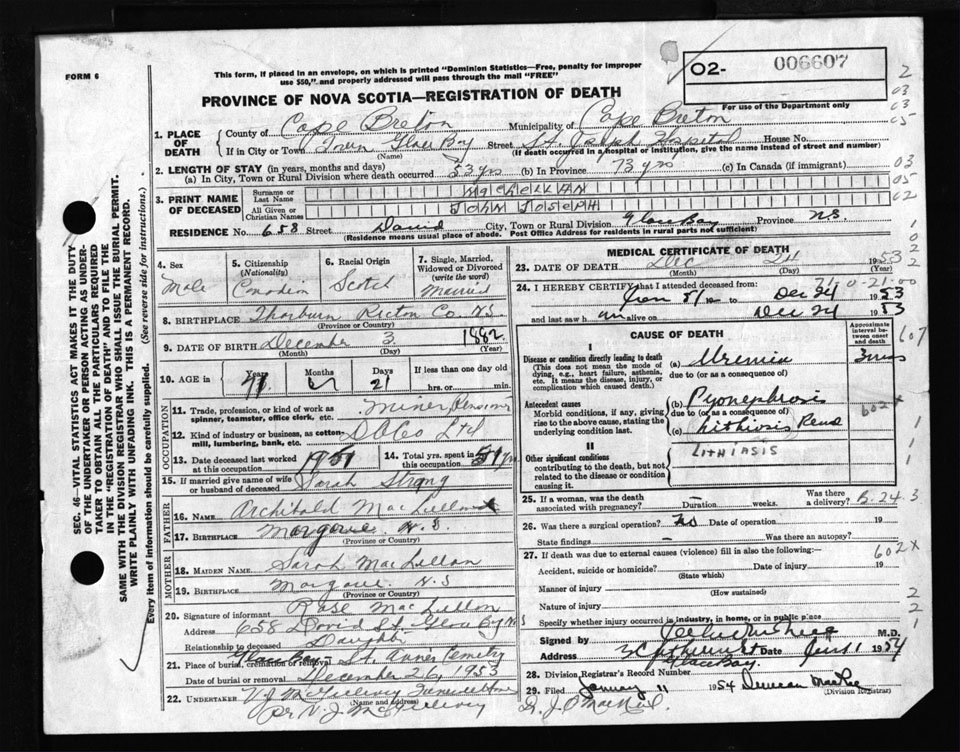 FORM 6
This form, if placed in an envelope, on which is printed "Dominion Statistics—Free, penalty for improper
use $50," and properly addressed will pass through the mail "FREE"
O2- 006607
For use of the Department only
PROVINCE OF NOVA SCOTIA—REGISTRATION OF DEATH
1. PLACE OF DEATH
County of Cape Breton Municipality of Cape Breton
If in City or Town Town Glace Bay Street St. Joseph Hospital House No.
(Name) (If death occurred in a hospital or institution, give the name instead of street and number)
2. LENGTH OF STAY (in years, months and days)
(a) In City, Town or Rural Division where death occurred 53 yrs (b) In Province 73 yrs (c) In Canada (if immigrant)
3. PRINT NAME OF DECEASED
Surname or Last Name
All Given or Christian Names JOHN JOSEPH
RESIDENCE No. 658 Street David City, Town or Rural Division Glace Bay Province N.S.
(Residence means usual place of abode. Post Office Address for residents in rural parts not sufficient)
4. Sex Male
5. Citizenship (Nationality) Canadian
6. Racial Origin Scotch
7. Single, Married, Widowed or Divorced (write the word) Married
8. BIRTHPLACE Thorburn Pictou Co. N.S.
(Province or Country)
9. DATE OF BIRTH December 3 1882
(Month) (Day) (Year)
10. AGE in Years Months Days 21 If less than one day
hrs. or min.
OCCUPATION
11. Trade, profession, or kind of work as spinner, teamster, office clerk, etc. Miner Pensioner
12. Kind of industry or business, as cotton-mill, lumbering, bank, etc. Ltd
13. Date deceased last worked at this occupation 1951
14. Total yrs. spent in this occupation 51 yrs
15. If married give name of wife or husband of deceased Sarah Strang
FATHER
16. NAME Archibald MacLellan
17. BIRTHPLACE Margaree N.S.
(Province or Country)
MOTHER
18. MAIDEN NAME Sarah MacLellan
19. BIRTHPLACE Margaree N.S
(Province or Country)
20. Signature of informant Rose MacLellan
Address 658 David St. Glace Bay N.S
Relationship to deceased Daughter
21. Place of burial, cremation or removal Glace Bay St. Annes Cemetery
Date of burial or removal December 26, 1953
22. UNDERTAKER V.J. McGillivray Funeral Home
(Name and address)
per V. J. McGillivray
MEDICAL CERTIFICATE OF DEATH
23. DATE OF DEATH Dec 24 1953
(Month) (Day) (Year)
24. I HEREBY CERTIFY that I attended deceased from:
from to Dec 24 1953
and last saw h im alive on Dec 24 1953
CAUSE OF DEATH
Approximate interval between onset and death
I
Disease or condition directly leading to death
(This does not mean the mode of dying, e.g., heart failure, asthenia, etc. It means the disease, injury, or complication which caused death.)
(a) Uremia
due to (or as a consequence of)
Antecedent causes
Morbid conditions, if any, giving rise to the above cause, stating the underlying condition last.
(b) Pyonephrosis
due to (or as a consequence of)
(c) Lithiosis Renal
LITHIASIS
II
Other significant conditions
contributing to the death, but not related to the disease or condition causing it.
25. If a woman, was the death associated with pregnancy? Duration weeks. Was there a delivery?
B.24.3
26. Was there a surgical operation? No Date of operation 19
State findings Was there an autopsy?
27. If death was due to external causes (violence) fill in also the following:— 602x
Accident, suicide or homicide? Date of injury 19
(State which)
Manner of injury
(How sustained)
Nature of injury
Specify whether injury occurred in industry, in home, or in public place
Signed by M.D.
Address Glace Bay. Date 1954
28. Division Registrar's Record Number
29. Filed January 11 1954 Duncan MacRae
(Division Registrar)
SEC. 46—VITAL STATISTICS ACT MAKES IT THE DUTY
OF THE UNDERTAKER OR PERSON ACTING AS UNDER-
TAKER TO OBTAIN ALL THE PARTICULARS REQUIRED
IN THE "REGISTRATION OF DEATH" AND TO FILE THE
SAME WITH THE DIVISION REGISTRAR WHO SHALL ISSUE THE BURIAL PERMIT.
WRITE PLAINLY WITH UNFADING INK. THIS IS A PERMANENT RECORD.
Every item of information should be carefully supplied. (See reverse side for instructions.)